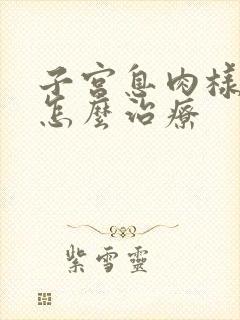 子宮息肉樣
怎麼治療
紫雪靈